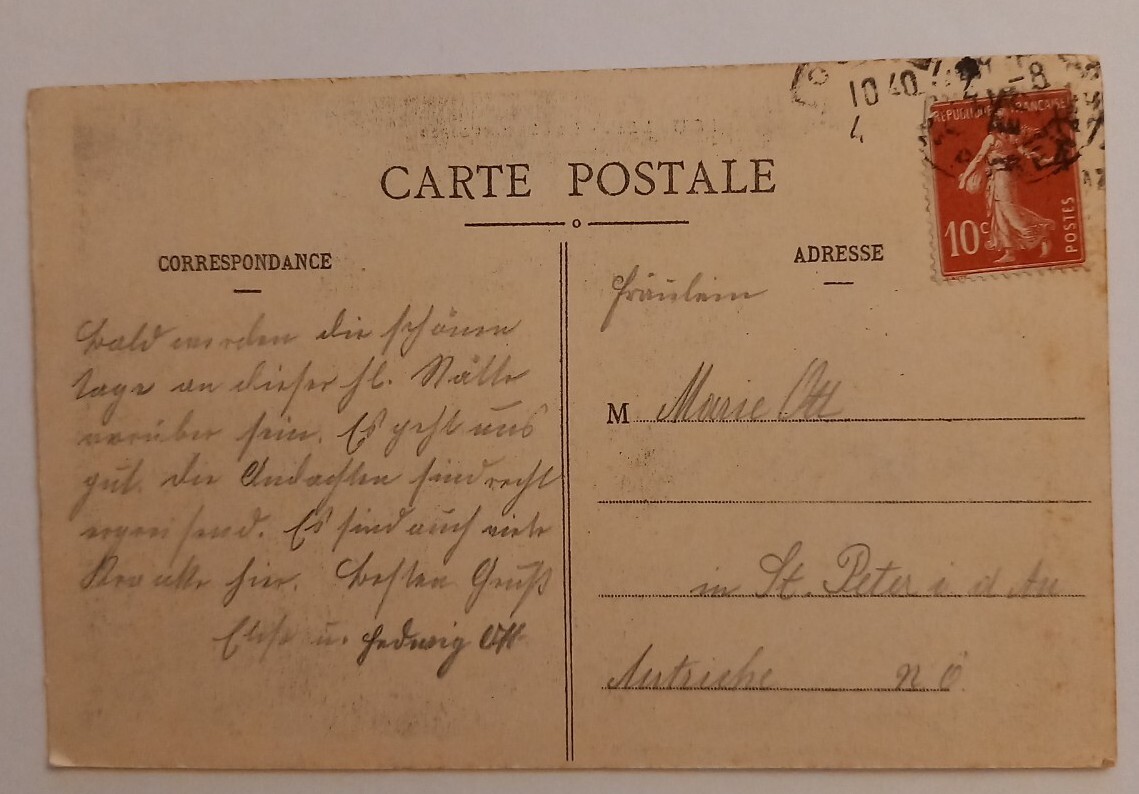 10 40
4
-8
REPUBLIQUE FRANÇAISE
10c
POSTES
CARTE POSTALE
CORRESPONDANCE
ADRESSE
Bald werden die schönen
Tage an dieser hl. Stätte
vorüber sein. Es geht uns
gut. Die Andachten sind recht
ergreifend. Es sind auch viele
Kranke hier. Besten Gruß
Elise u. Hedwig Ott
Fräulein
M Marie Ott
in St. Peter i. d. Au
Autriche N Ö.